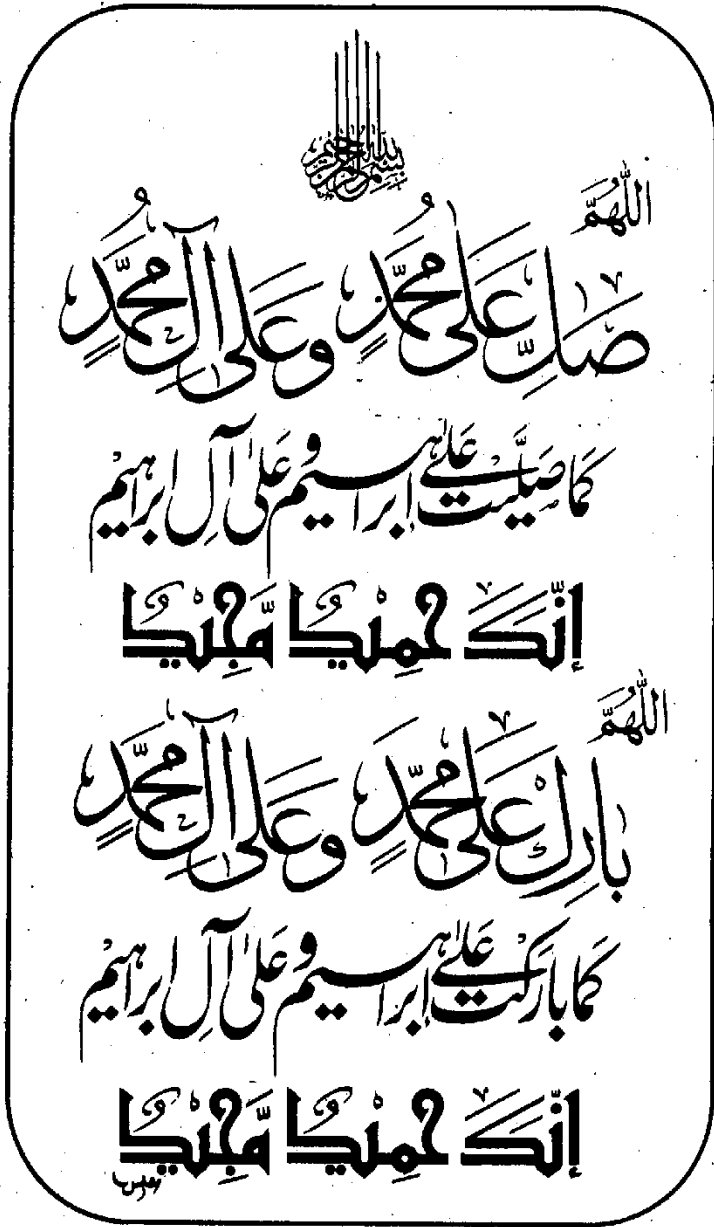 بسم الله الرحمن الرحيم
اللّٰهُمَّ
صَلِّ عَلٰى مُحَمَّدٍ وَعَلٰى آلِ مُحَمَّدٍ
كَمَا صَلَّيْتَ عَلٰى اِبْرَاهِيْمَ وَعَلٰى آلِ اِبْرَاهِيْمَ
إِنَّكَ حَمِيْدٌ مَّجِيْدٌ
اللّٰهُمَّ
بَارِكْ عَلٰى مُحَمَّدٍ وَعَلٰى آلِ مُحَمَّدٍ
كَمَا بَارَكْتَ عَلٰى اِبْرَاهِيْمَ وَعَلٰى آلِ اِبْرَاهِيْمَ
إِنَّكَ حَمِيْدٌ مَّجِيْدٌ